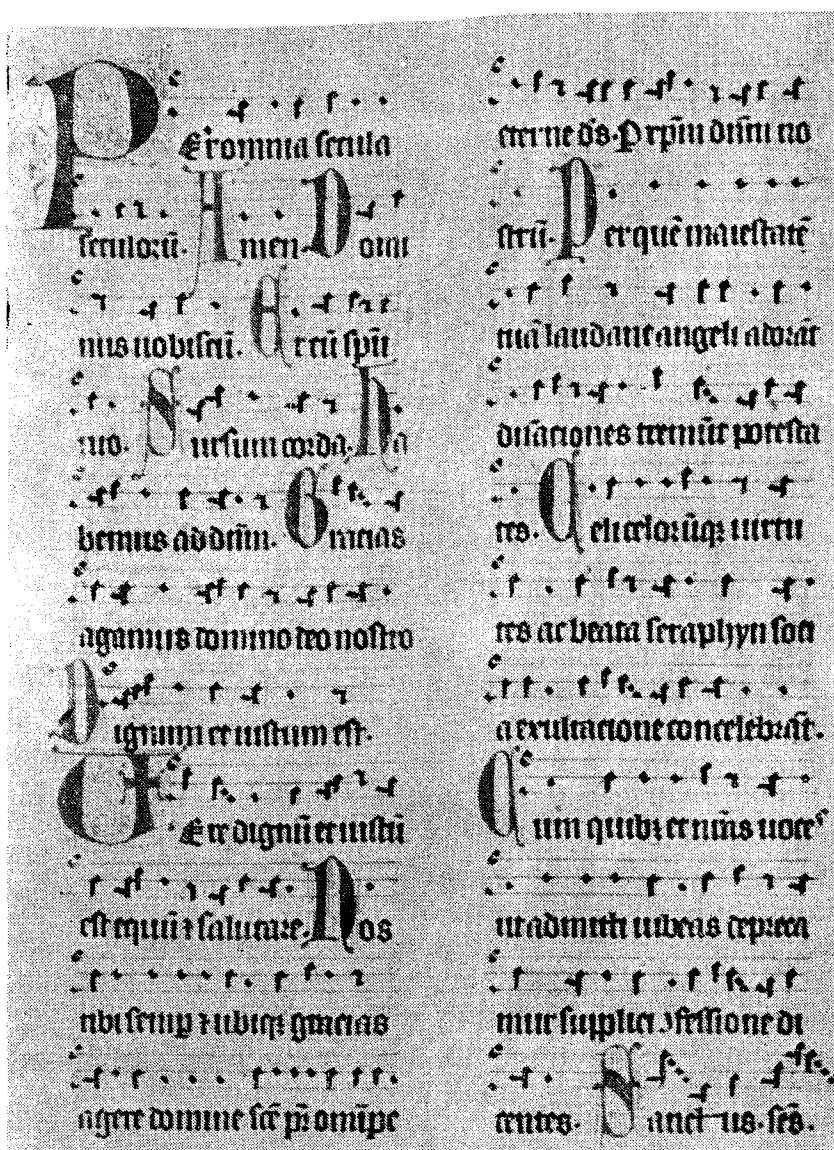 Per omnia secula
seculorū. Amen. Domi
nus uobiscū. Et cū spū
tuo. Sursum corda. Ha
bemus ad dnm̄. Gracias
agamus domino deo nostro
Dignum et iustum est.
Uere dignū et iustū
est equū ⁊ salutare. Nos
tibi semp̄ ⁊ ubiqꝫ gracias
agere domine scē pr̄ omīpe
eterne d̄s. P xp̄m dnm̄ no
strū. Per quē maiestatē
tuā laudant angeli adorāt
dn̄aciones tremūt potesta
tes. Celi celorūqꝫ uirtu
tes ac beata seraphyn soci
a exultacione concelebrāt.
Cum quibꝫ et nr̄as uoces
ut admitti iubeas depreca
mur supplici ꝯfessione di
centes. Sanctus. scs̄.